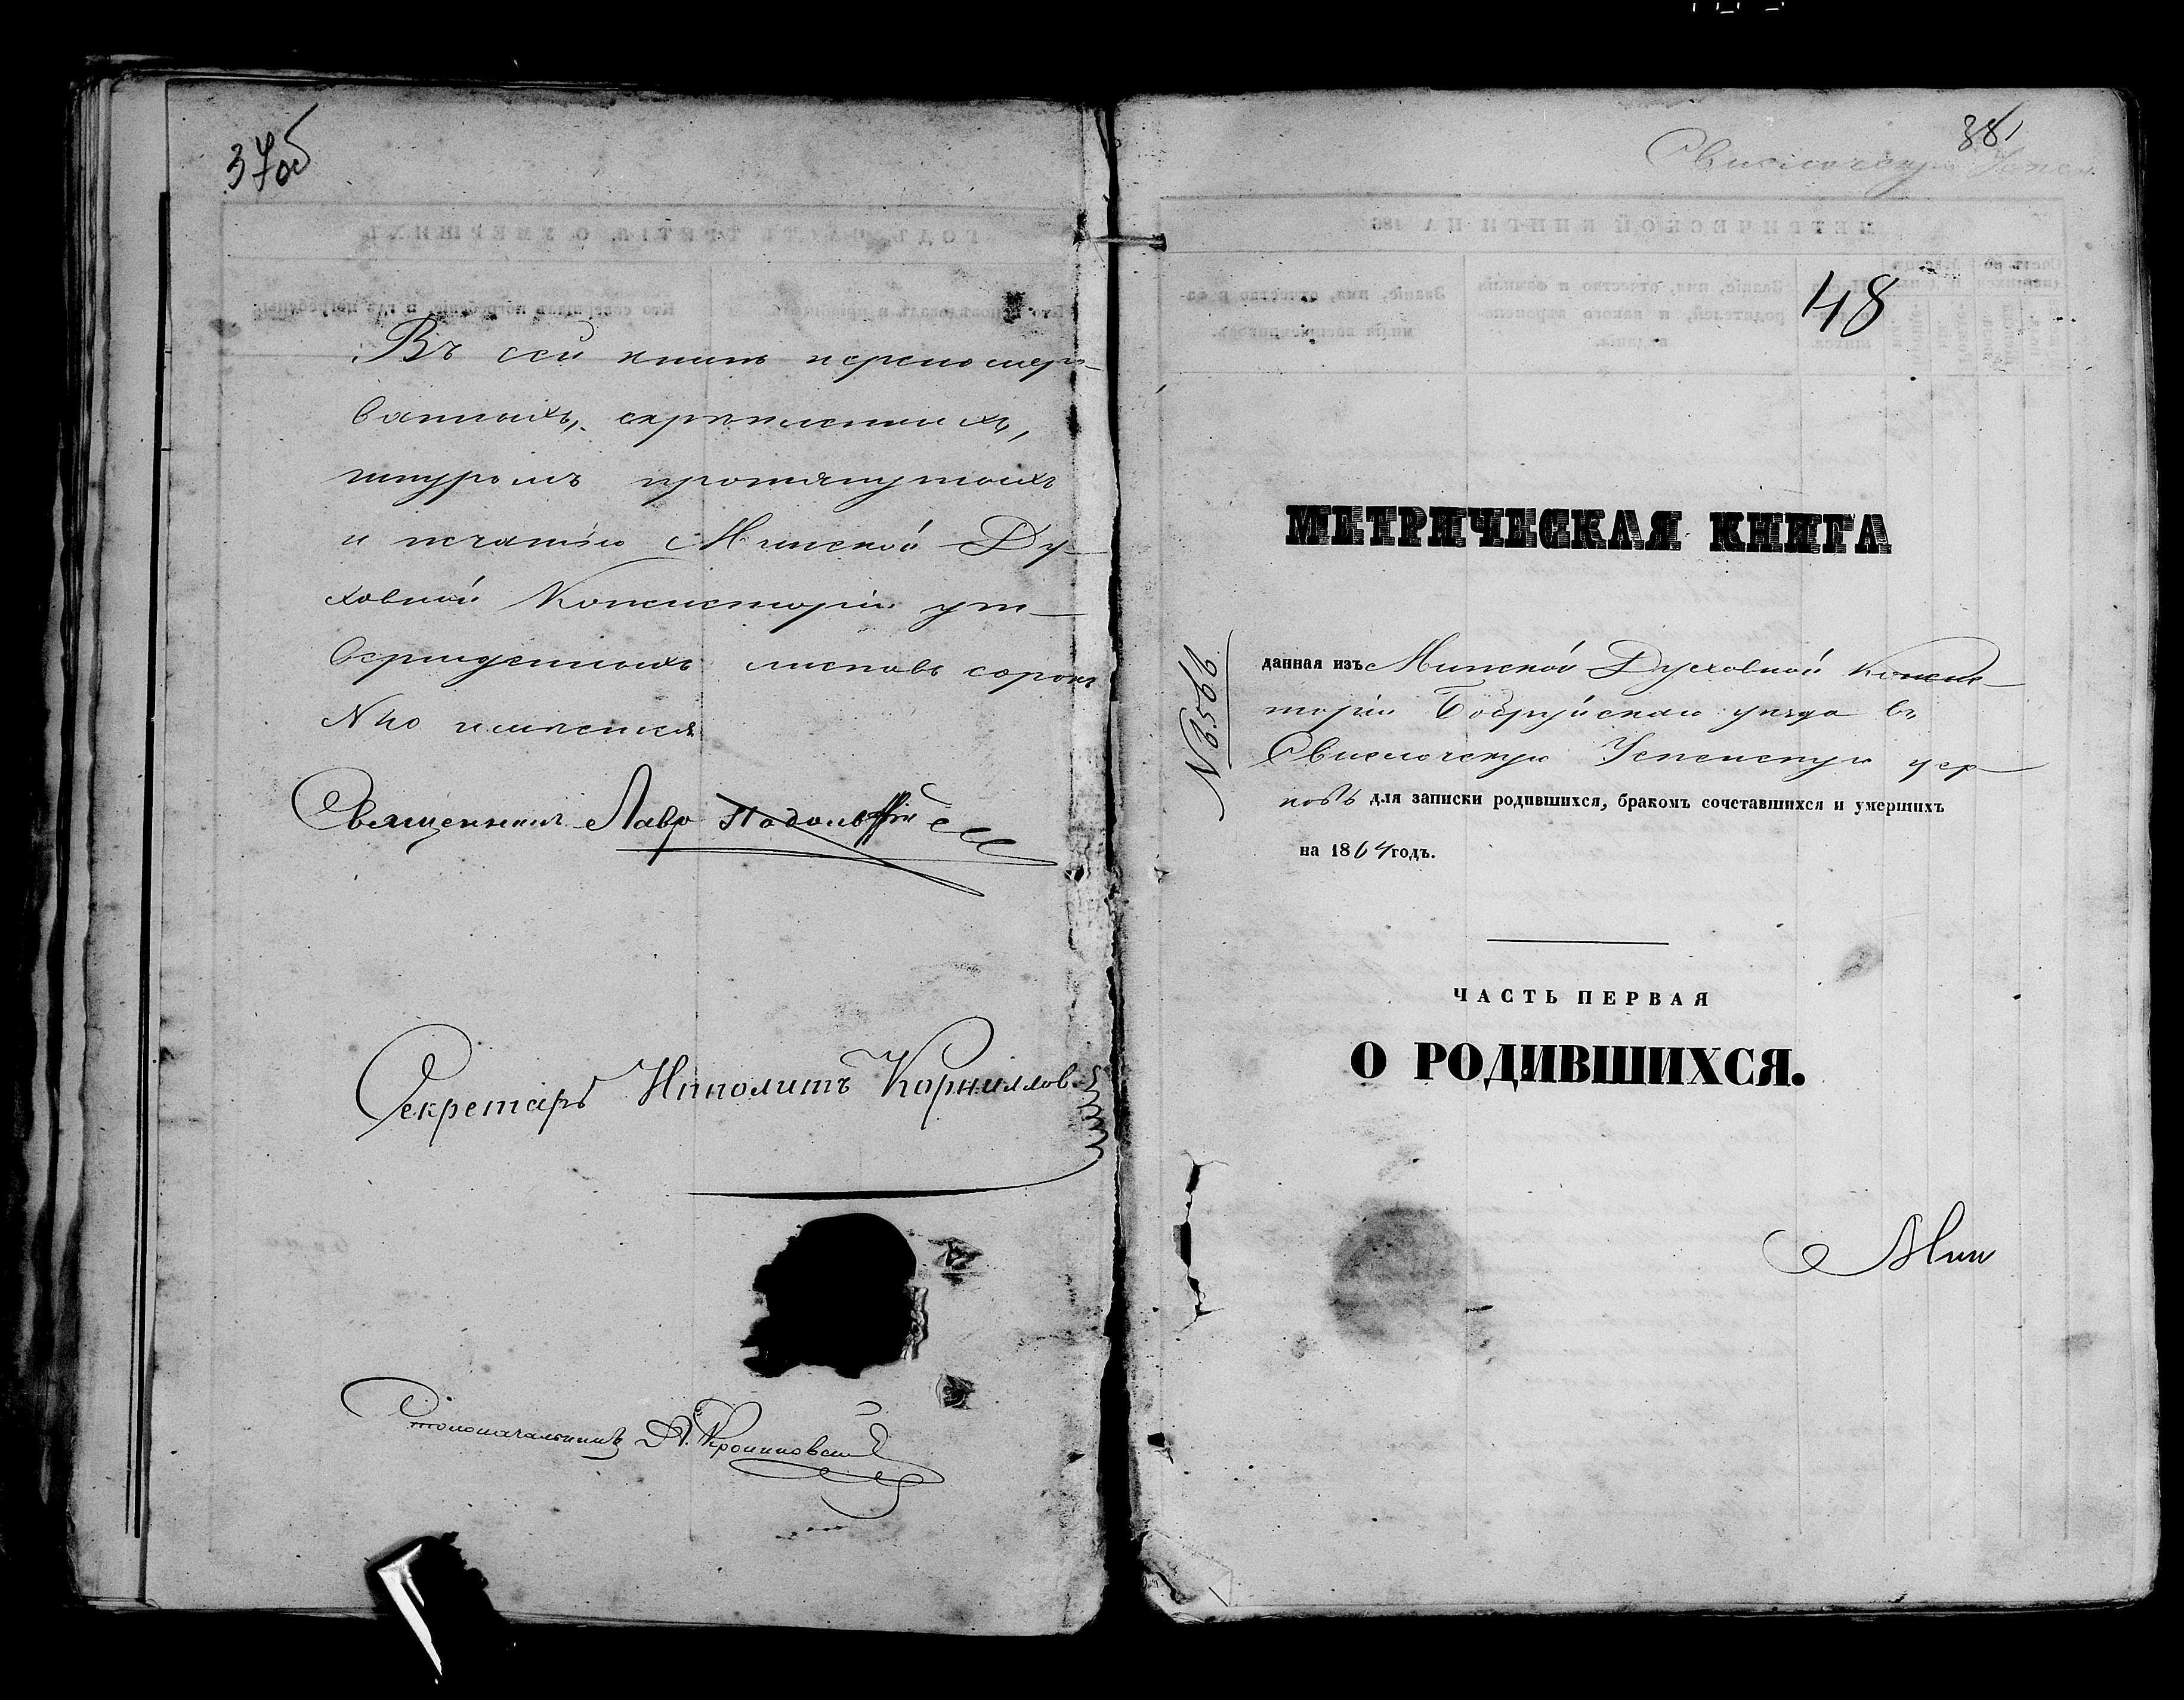 37об
Въ сей книгѣ перенумеро-
ванныхъ, скрѣпленныхъ,
шнуромъ протянутыхъ
и печатію Минской Ду-
ховной Консисторіи ут-
вержденныхъ листовъ сорокъ
N 40 имѣется
Священникъ Лавр Подольскій
Секретарь Ипполитъ Корниллов
Столоначальникъ
38
Свислочскую Успен
48
МЕТРИЧЕСКАЯ КНИГА
N 3566
данная изъ Минской Духовной Консис-
торіи Бобруйскаго уѣзда въ
Свислочскую Успенскую цер-
ковь для записки родившихся, бракомъ сочетавшихся и умершихъ
на 1864 годъ.
ЧАСТЬ ПЕРВАЯ
О РОДИВШИХСЯ.
Мин